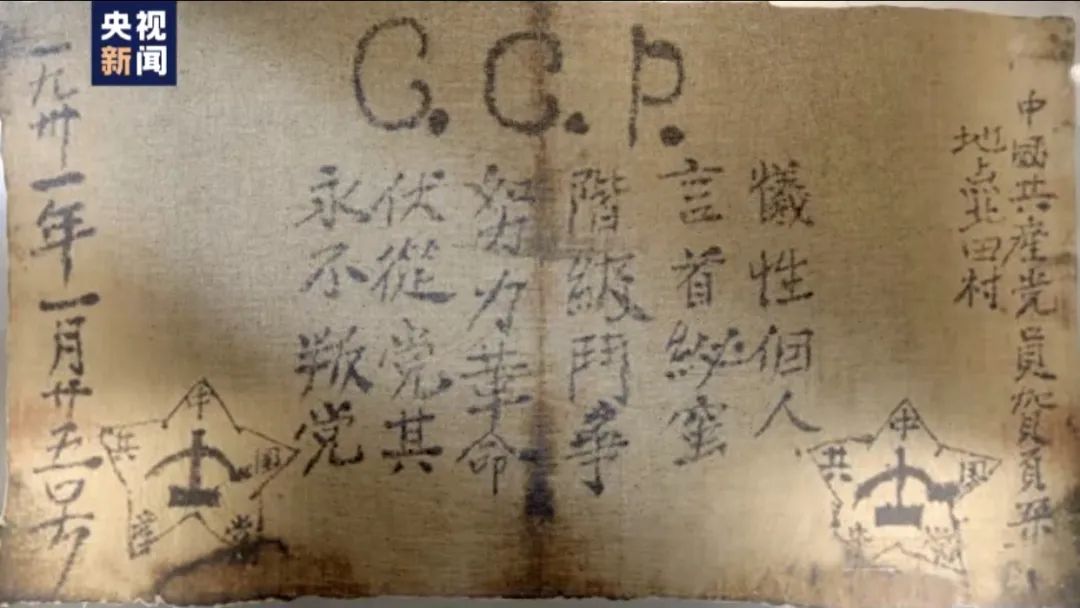 央视
新闻
C.C.P.
中國共產党員賀頁朵
地点北田村
犧性個人
言首秘蜜
階級鬥爭
努力革命
伏從党其
永不叛党
一九卅一年一月廿五号
中
共
国
党
中
共
国